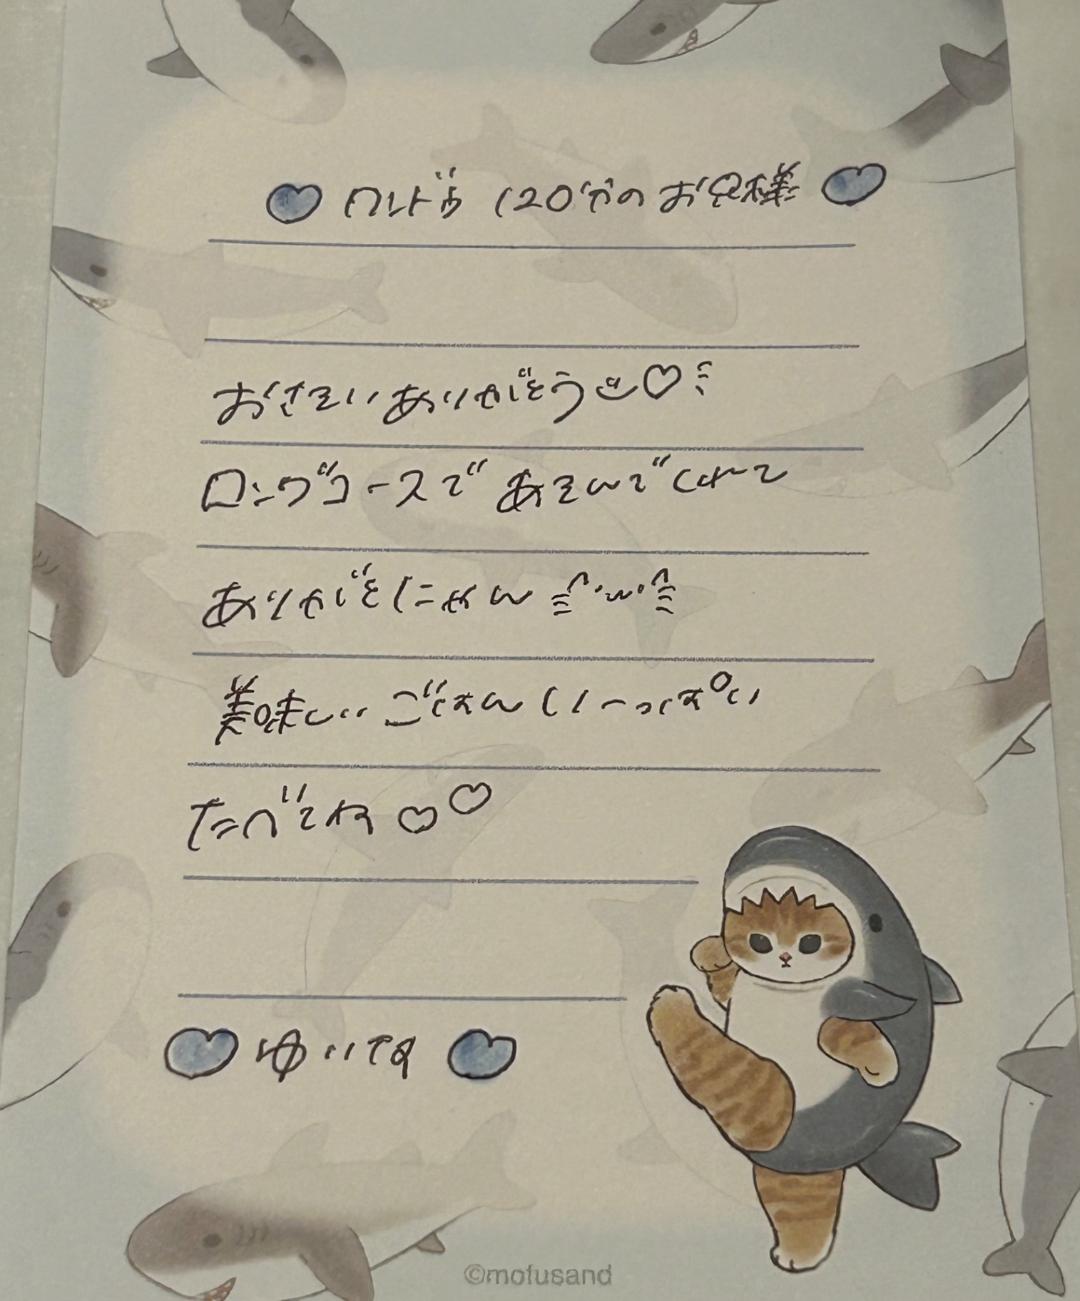 ♡ 120分のお兄様 ♡
おさそいありがとう♡
ロングコースであそんでくれて
ありがとにゃん
美味しいごはんい〜っぱい
たべてね♡♡
♡ ゆい ♡
©mofusand